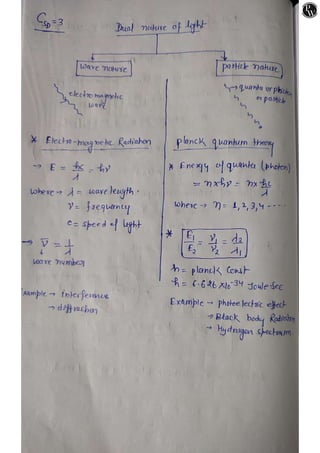 C_SD = 3
Dual nature of light
wave nature
particle nature
electromagnetic
wave
→ quanta or photon
or particle
* Electro-magnetic Radiation
→ E = hc/λ = hν
where → λ = wave length.
ν = frequency
c = speed of light
→ ν̅ = 1/λ
wave number
Example → Interference
→ diffraction
planck quantum theory
* Energy of quanta (photon)
= n×hν = n×hc/λ
where → n = 1, 2, 3, 4 ----
* E₁/E₂ = ν₁/ν₂ = λ₂/λ₁
h = planck const
h = 6.626 ×10⁻³⁴ Joule sec
Example → photoelectric effect
→ Black body Radiation
→ Hydrogen spectrum.